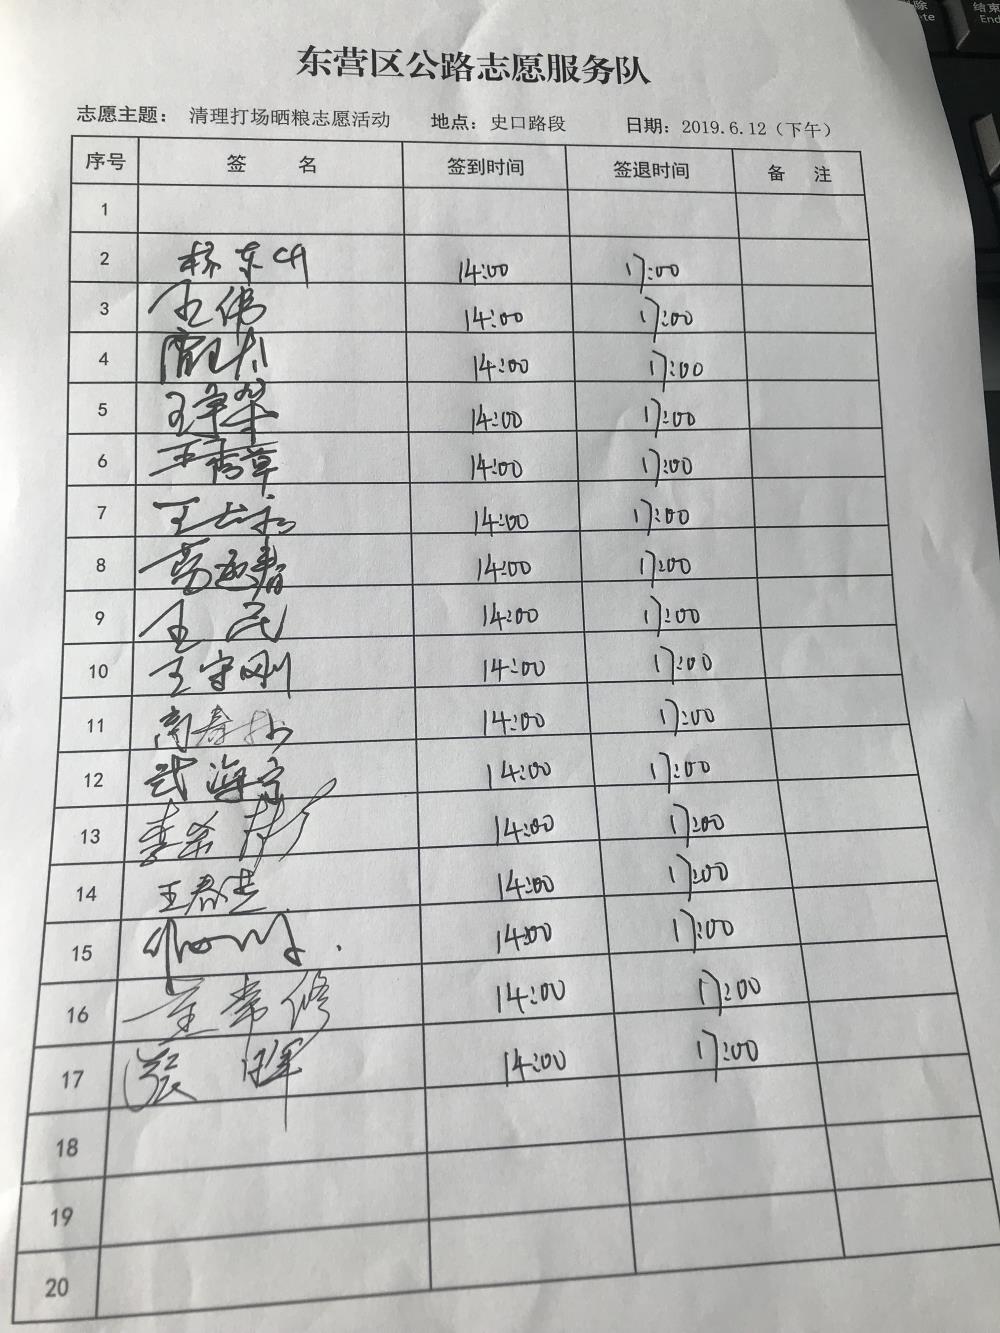 东营区公路志愿服务队
志愿主题： 清理打场晒粮志愿活动 地点：史口路段 日期：2019.6.12（下午）
序号 签 名 签到时间 签退时间 备 注
1
2 14:00 17:00
3 王伟 14:00 17:00
4 14:00 17:00
5 14:00 17:00
6 王香草 14:00 17:00
7 14:00 17:00
8 14:00 17:00
9 王民 14:00 17:00
10 王守刚 14:00 17:00
11 14:00 17:00
12 武海宁 14:00 17:00
13 14:00 17:00
14 14:00 17:00
15 14:00 17:00
16 14:00 17:00
17 张晖 14:00 17:00
18
19
20
除
ete
结束
End